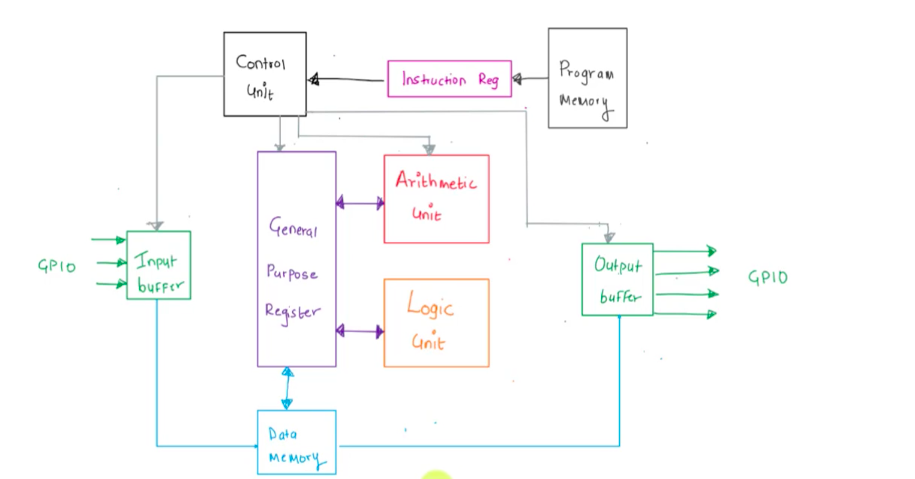 Control
Unit
Instruction Reg
Program
Memory
General
Purpose
Register
Arithmetic
Unit
Logic
Unit
GPIO
Input
buffer
Output
buffer
GPIO
Data
Memory